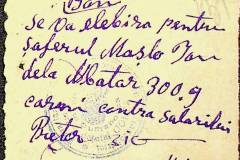 Bon
se va elebira pentru
șaferul Mașlo Ion
dela Abatar 300 g
carem contra salariului
Pretor